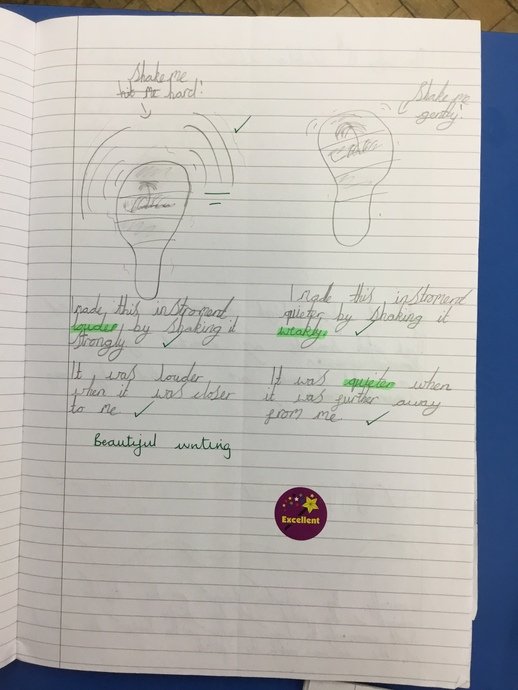 Shake me
hit me hard!
Shake me
gently!
I made this instroment
louder by shaking it
strongly
It was louder
when it was closer
to me
Beautiful writing
I made this instroment
quieter by shaking it
weakly.
It was quieter when
it was further away
from me.
Excellent